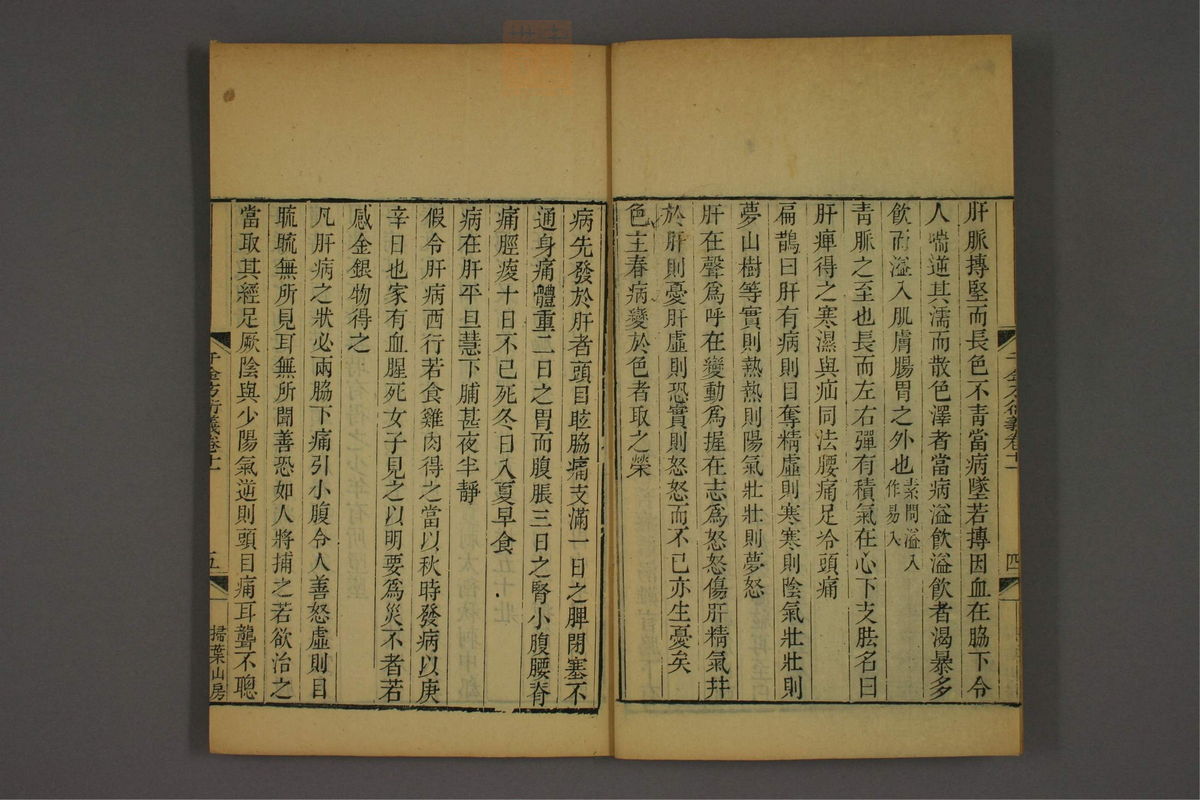 肝脈搏堅而長色不青當病墜若搏因血在脇下令
人喘逆其濡而散色澤者當病溢飲溢飲者渴暴多
飲而溢入肌膚腸胃之外也素問溢入作易入
青脈之至也長而左右彈有積氣在心下支胠名曰
肝痺得之寒濕與疝同法腰痛足冷頭痛
扁鵲曰肝有病則目奪精虛則寒寒則陰氣壯壯則
夢山樹等實則熱熱則陽氣壯壯則夢怒
肝在聲爲呼在變動爲握在志爲怒怒傷肝精氣并
於肝則憂肝虛則恐實則怒怒而不已亦生憂矣
色主春病變於色者取之榮
病先發於肝者頭目眩脇痛支滿一日之脾閉塞不
通身痛體重二日之胃而腹脹三日之腎小腹腰脊
痛脛痠十日不已死冬日入夏早食
病在肝平旦慧下脯甚夜半靜
假令肝病西行若食雞肉得之當以秋時發病以庚
辛日也家有血腥死女子見之以明要爲災不者若
感金銀物得之
凡肝病之狀必兩脇下痛引小腹令人善怒虛則目
䀮䀮無所見耳無所聞善恐如人將捕之若欲治之
當取其經足厥陰與少陽氣逆則頭目痛耳聾不聰
千金方衍義卷十一
四
千金方衍義卷十一
五
掃葉山房